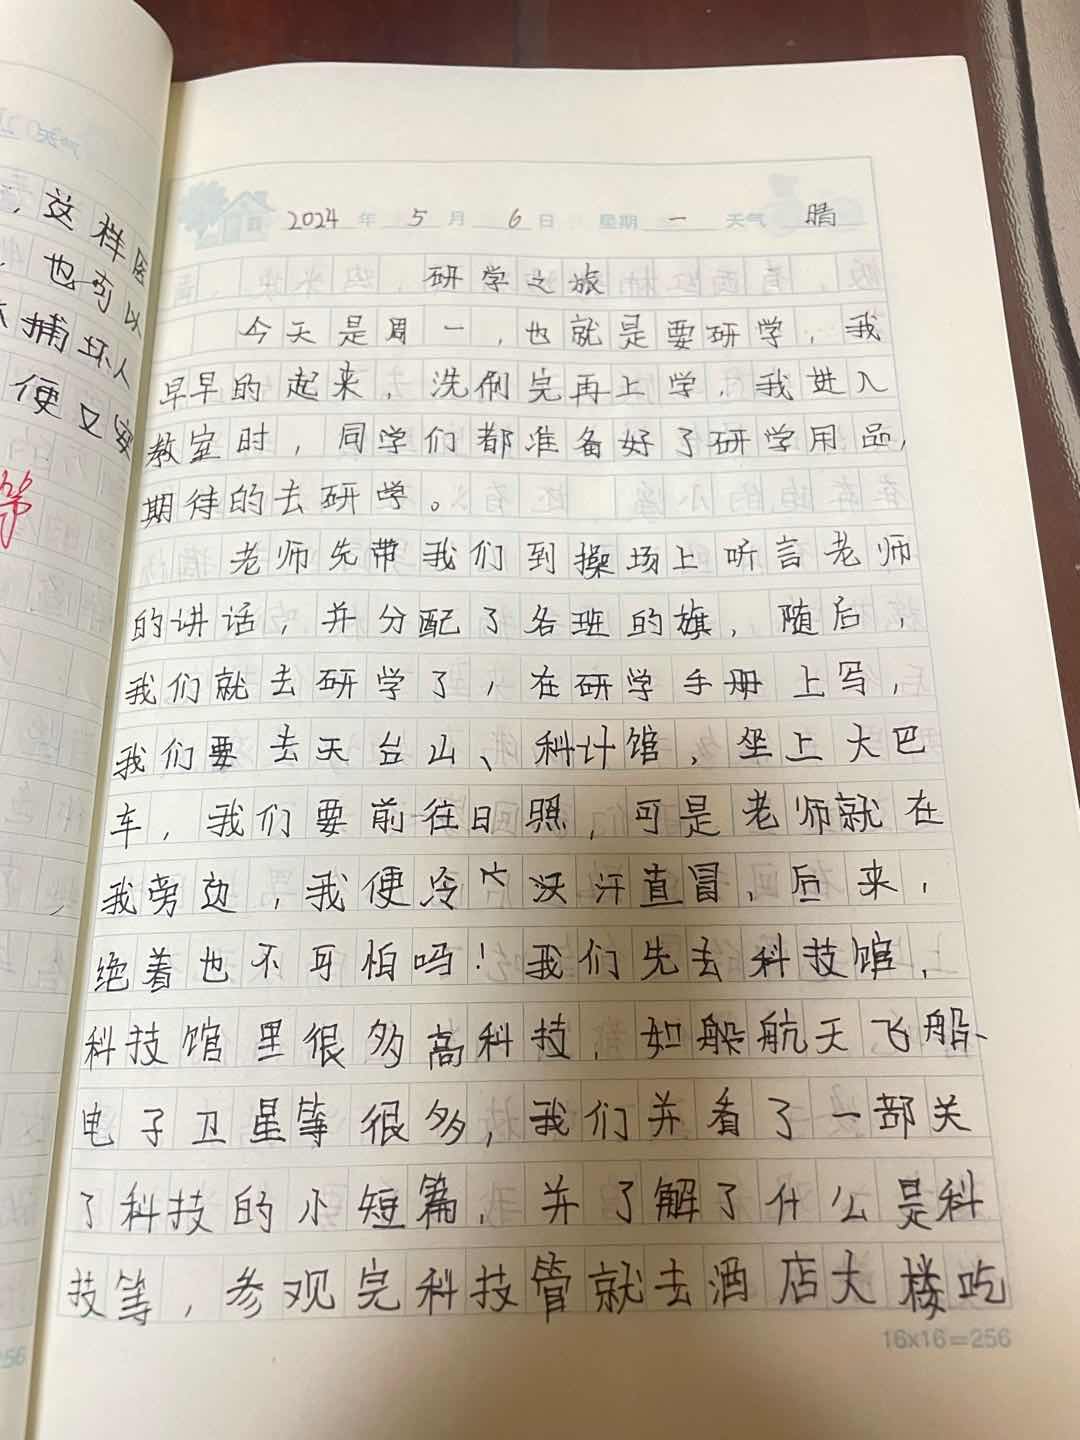 ，这样医
，也可以
捕坏人
便又安
2024年5月6日 星期一 天气 晴
研学之旅
今天是周一，也就是要研学，我
早早的起来，洗刷完再上学，我进入
教室时，同学们都准备好了研学用品，
期待的去研学。
老师先带我们到操场上听言老师
的讲话，并分配了各班的旗，随后，
我们就去研学了，在研学手册上写，
我们要去天台山、科计馆，坐上大巴
车，我们要前往日照，可是老师就在
我旁边，我便冷汗直冒，后来，
绝着也不可怕吗！我们先去科技馆，
科技馆里很多高科技，如船航天飞船、
电子卫星等很多，我们并看了一部关
了科技的小短篇，并了解了什么是科
技等，参观完科技管就去酒店大楼吃
16x16=256
256